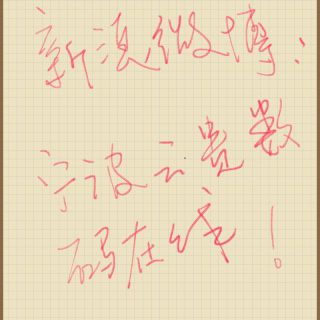 新浪微博：
宁波云贵数
码在线！